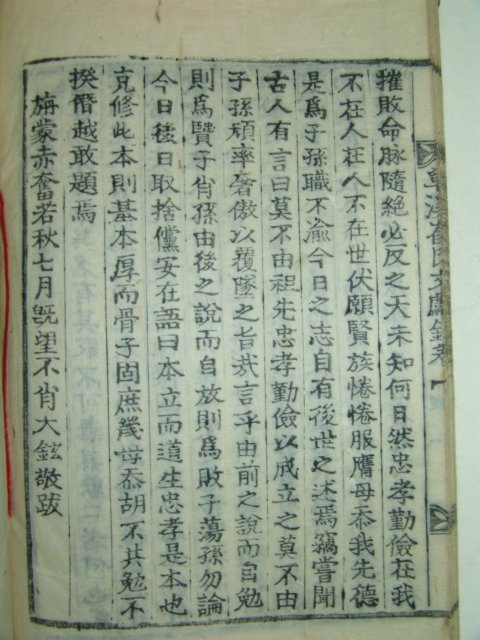 摧敗命脉隨絶必反之天未知何日然忠孝勤儉在我
不在人在人不在世伏願賢族惓惓服膺毋忝我先德
是爲子孫職不渝今日之志自有後世之述焉竊嘗聞
古人有言曰莫不由祖先忠孝勤儉以成立之莫不由
子孫頑率奢傲以覆墜之旨哉言乎由前之說而自勉
則爲賢子肖孫由後之說而自放則爲敗子蕩孫勿論
今日後日取捨儻安在語曰本立而道生忠孝是本也
克修此本則基本厚而骨子固庶幾毋忝胡不共勉不
揆僭越敢題焉
旃蒙赤奮若秋七月旣望不肖大鉉敬跋
文獻錄卷